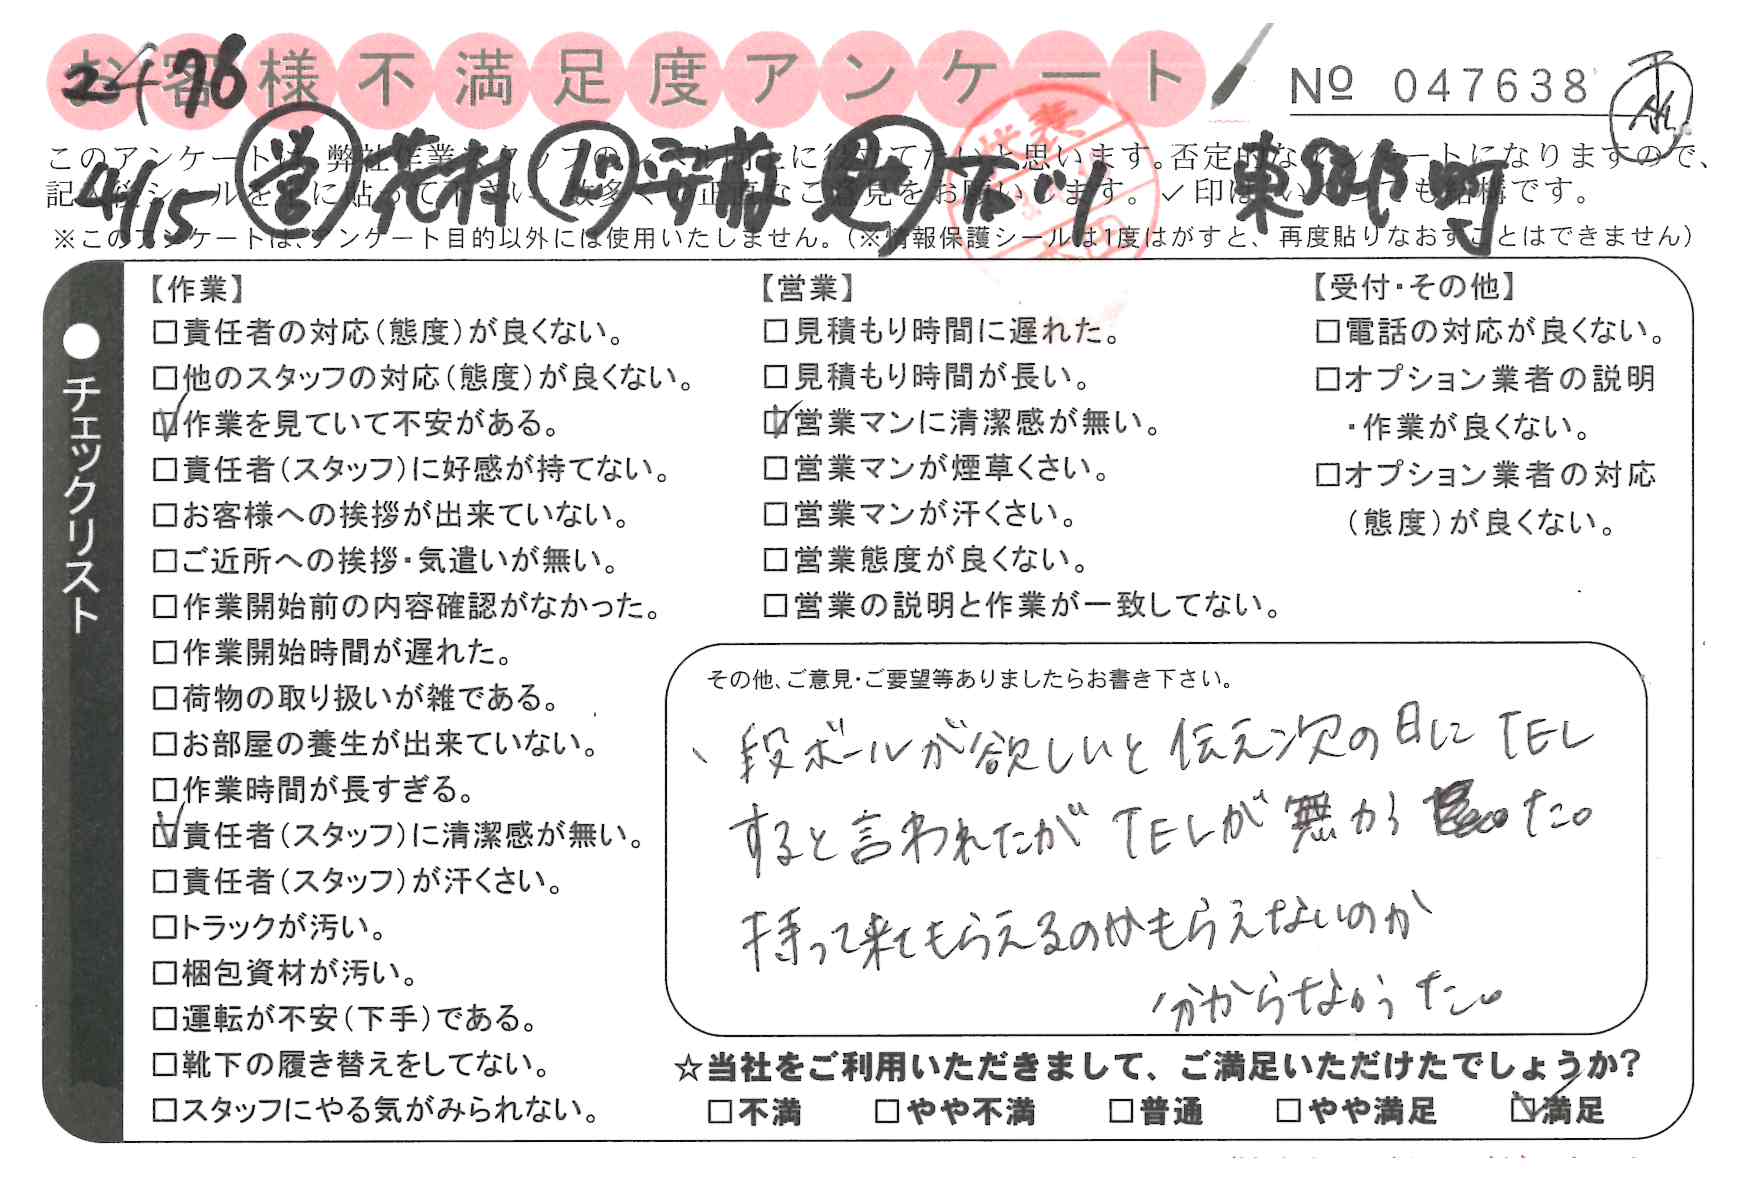 お客様不満足度アンケート
Nº 047638
2476
4/15 営 荒村 ド 安藤 助 石川 東郷町
このアンケートは、弊社作業スタッフのレベル向上に役立てたいと思います。否定的なアンケートになりますので、
記入後シールを上に貼って下さい。数多くの正直なご意見をお願いします。✓印はいくつでも結構です。
※このアンケートは、アンケート目的以外には使用いたしません。（※情報保護シールは1度はがすと、再度貼りなおすことはできません）
●チェックリスト
【作業】
□責任者の対応（態度）が良くない。
□他のスタッフの対応（態度）が良くない。
☑作業を見ていて不安がある。
□責任者（スタッフ）に好感が持てない。
□お客様への挨拶が出来ていない。
□ご近所への挨拶・気遣いが無い。
□作業開始前の内容確認がなかった。
□作業開始時間が遅れた。
□荷物の取り扱いが雑である。
□お部屋の養生が出来ていない。
□作業時間が長すぎる。
☑責任者（スタッフ）に清潔感が無い。
□責任者（スタッフ）が汗くさい。
□トラックが汚い。
□梱包資材が汚い。
□運転が不安（下手）である。
□靴下の履き替えをしてない。
□スタッフにやる気がみられない。
【営業】
□見積もり時間に遅れた。
□見積もり時間が長い。
☑営業マンに清潔感が無い。
□営業マンが煙草くさい。
□営業マンが汗くさい。
□営業態度が良くない。
□営業の説明と作業が一致してない。
【受付・その他】
□電話の対応が良くない。
□オプション業者の説明
・作業が良くない。
□オプション業者の対応
（態度）が良くない。
その他、ご意見・ご要望等ありましたらお書き下さい。
、段ボールが欲しいと伝え次の日にTEL
すると言われたがTELが無かった。
持って来てもらえるのかもらえないのか
分からなかった。
☆当社をご利用いただきまして、ご満足いただけたでしょうか?
□不満 □やや不満 □普通 □やや満足 ☑満足